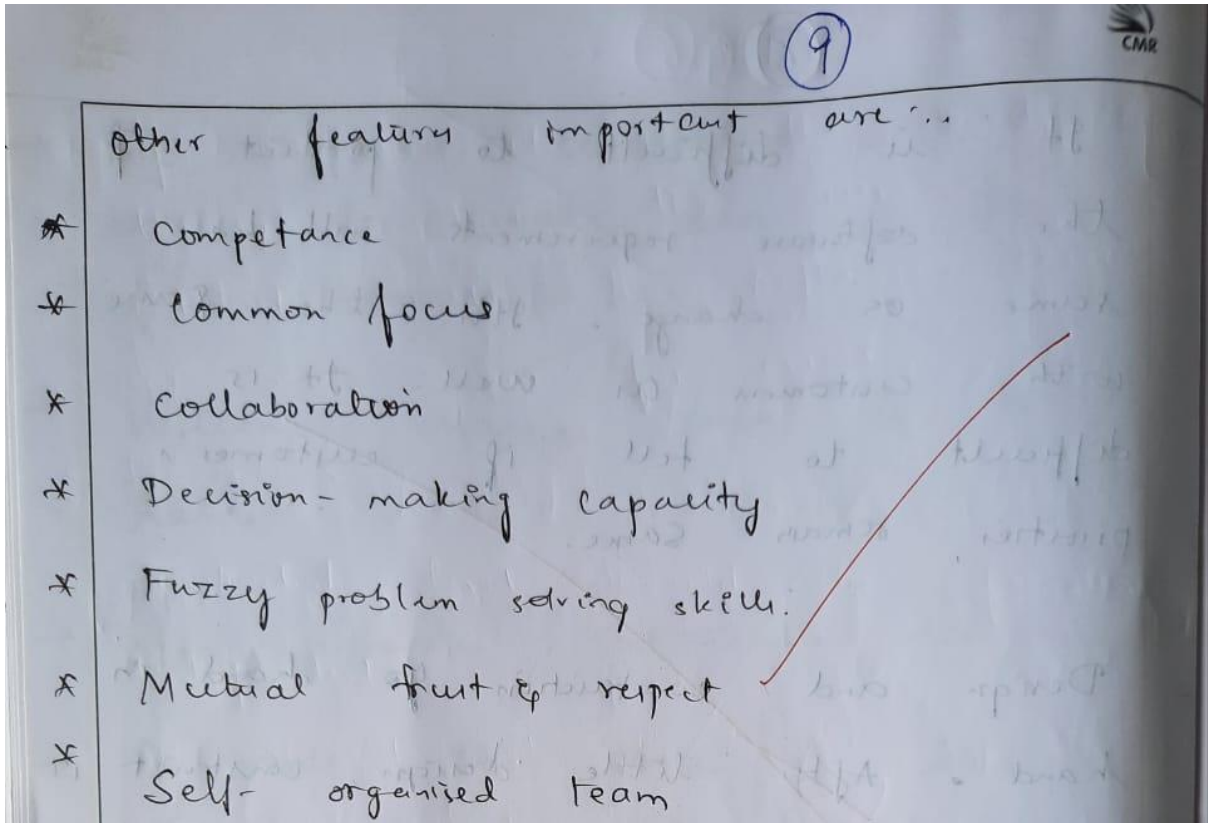 9
CMR
other features important are :..
* Competance
* Common focus
* Collaboration
* Decision - making capacity
* Fuzzy problem solving skills.
* Mutual trust & respect
* Self - organised team